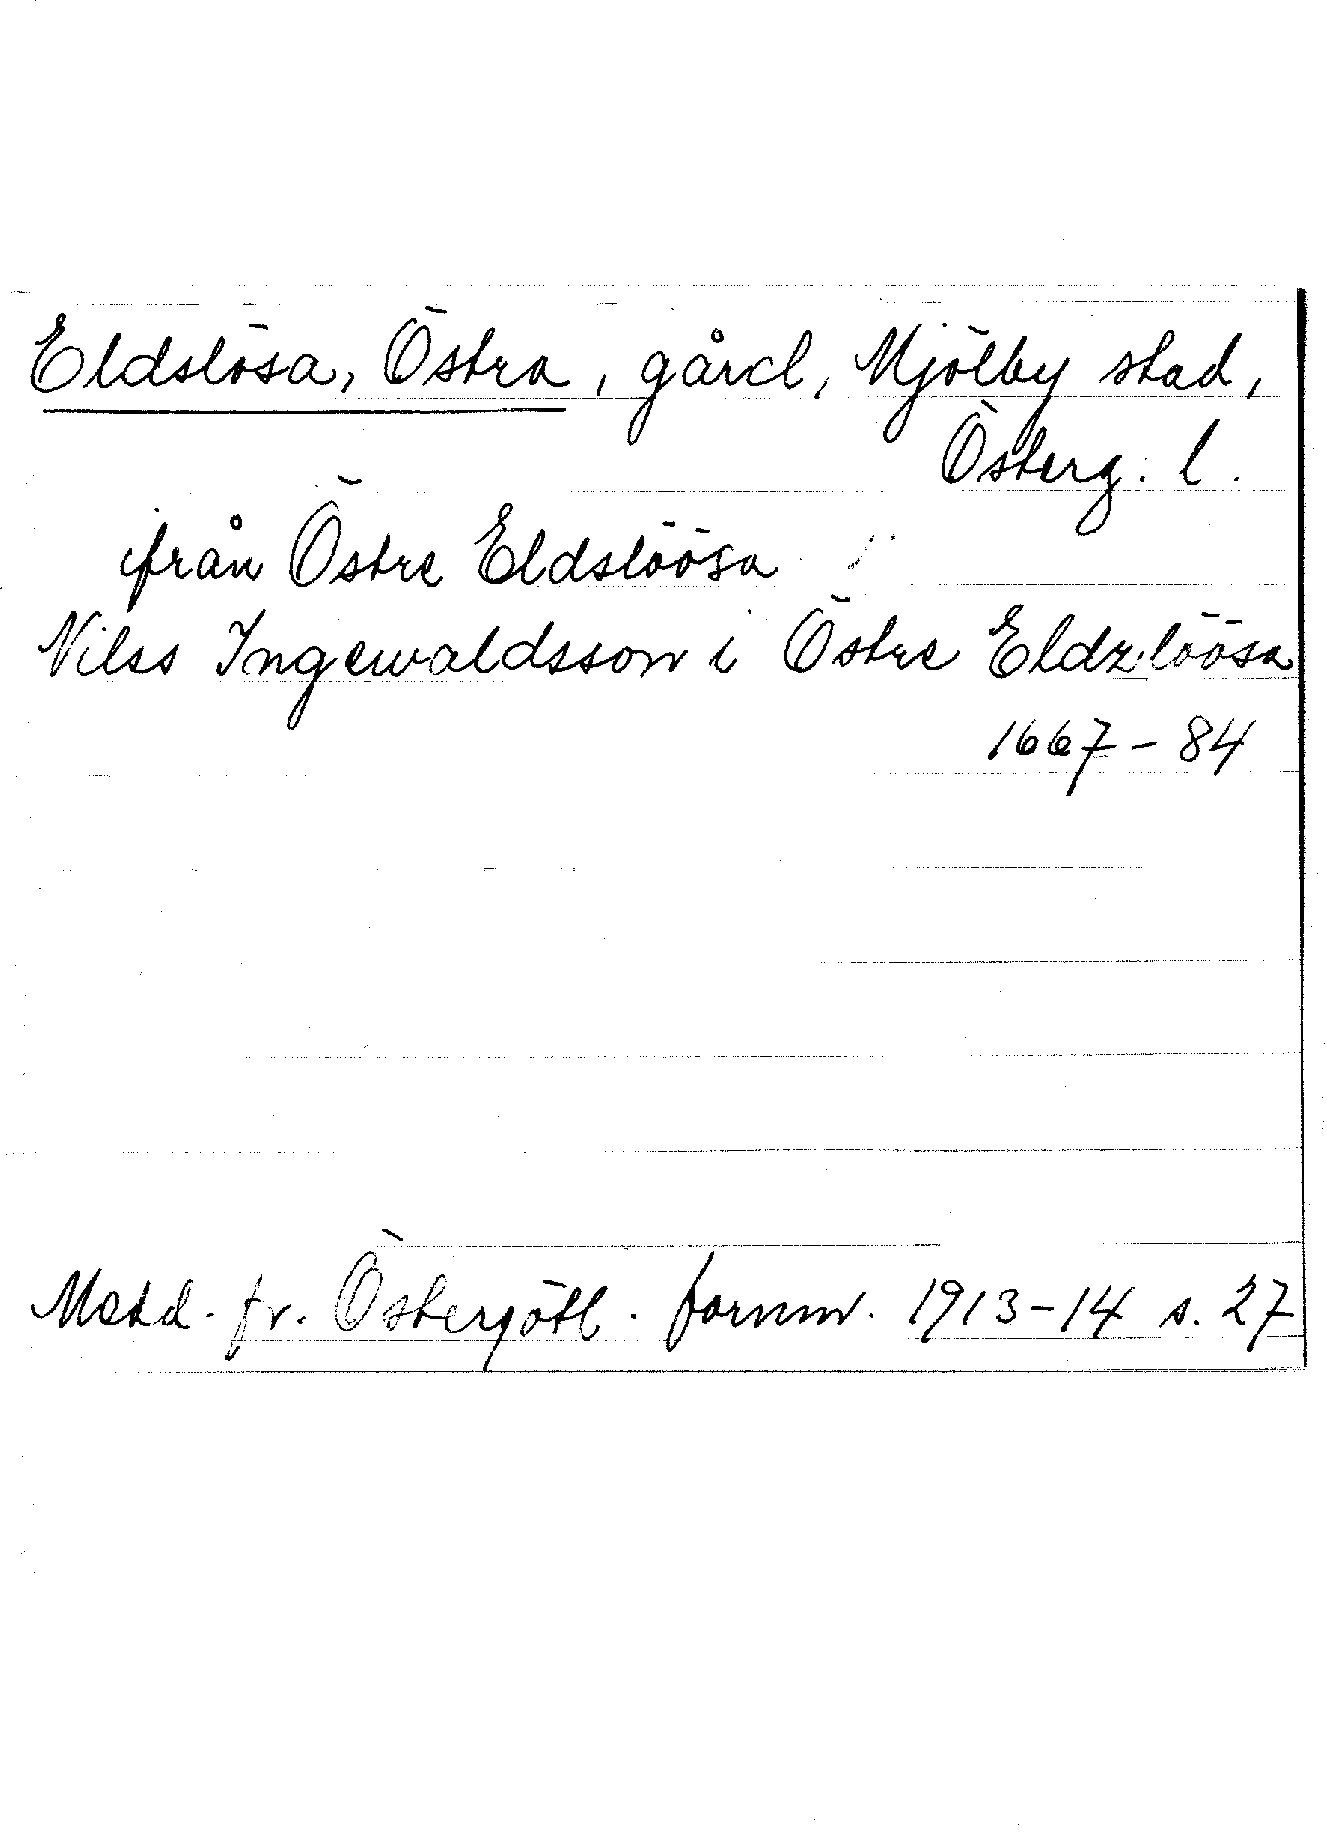 Eldslösa, Östra, gård, Mjölby stad,
Österg. l.
ifrån Östre Eldslöösa
Nilss Ingewaldsson i Östre Eldzlöösa
1667-84
Medd. fr. Östergötl. fornm. 1913-14 s. 27